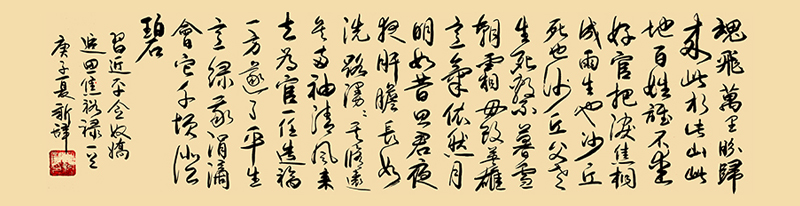 魂飛萬里盼歸
来此水此山此
地百姓誰不愛
好官把淚焦桐
成雨生也沙丘
死也沙丘父老
生死繫暮雪
朝霜毋改英雄
意氣依然月
明如昔思君夜
夜肝膽長如
洗路漫漫其修遠
矣兩袖清風来
去為官一任造福
一方遂了平生
意绿我涓滴
會它千頃澄
碧
習近平念奴嬌
追思焦裕禄一
庚子夏新